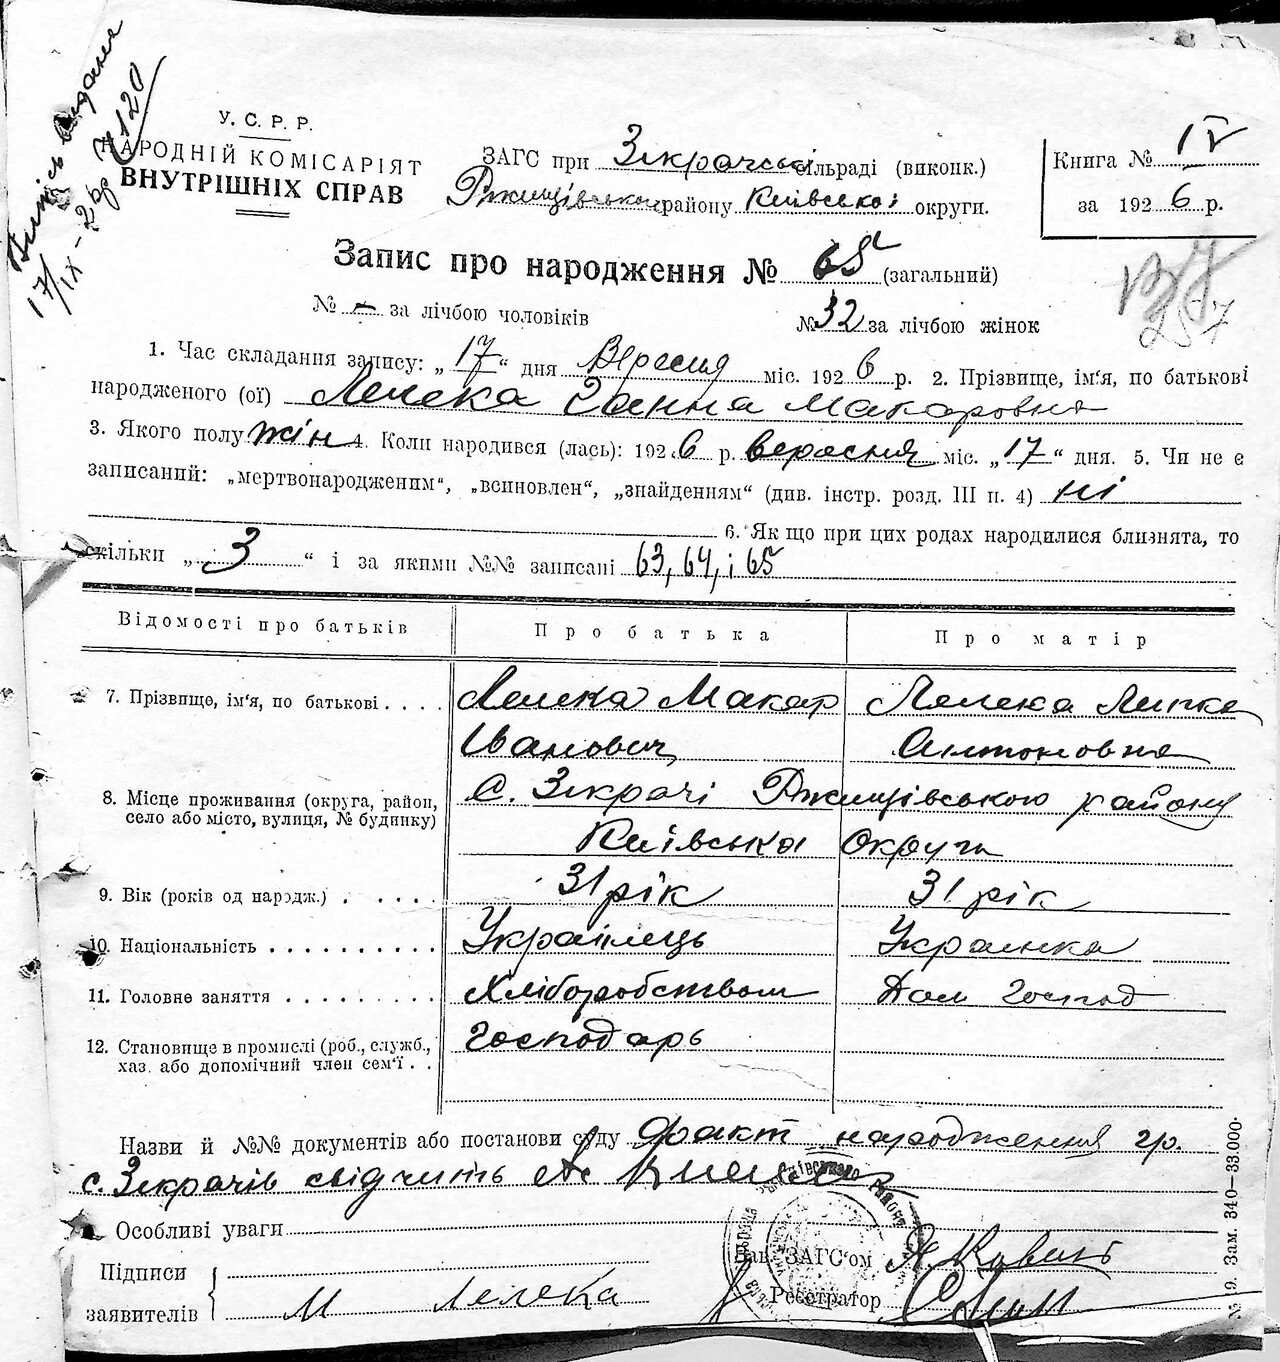 Виписъ видана
17/IX-26р №120
У. С. Р. Р.
НАРОДНІЙ КОМІСАРІЯТ
ВНУТРІШНІХ СПРАВ
ЗАГС при Зікрачській сільраді (виконк.)
Ржищівського району Київської округи.
Книга № IV
за 1926 р.
Запис про народження № 65 (загальний)
257
№ – за лічбою чоловіків
№ 32 за лічбою жінок
1. Час складання запису: „17“ дня Вересня міс. 1926 р. 2. Прізвище, ім'я, по батькові
народженого (ої) Лелека Ганна Макаровна
3. Якого полу жін 4. Коли народився (лась): 1926 р. вересня міс. „17“ дня. 5. Чи не є
записаний: „мертвонародженим“, „всиновлен“, „знайденням“ (див. інстр. розд. III п. 4) ні
6. Як що при цих родах народилися близнята, то
скільки „3“ і за якими №№ записані 63, 64, і 65
Відомості про батьків Про батька Про матір
7. Прізвище, ім'я, по батькові . . . . Лелека Макар Лелека Липка
Іванович Антоновна
8. Місце проживання (округа, район,
село або місто, вулиця, № будинку)
С. Зікрачі Ржищівського району
Київська Округи
9. Вік (років од народж.) . . . . . 31 рік 31 рік
10. Національність . . . . . . . . . . Українець Украинка
11. Головне заняття . . . . . . . . . Хліборобством Дом Господ
12. Становище в промислі (роб., служб.,
хаз. або допомічний член сем'ї . .
Господарь
Назви й №№ документів або постанови суду Факт народження гр.
с. Зікрачів свідчить
Особливі уваги
Підписи
заявителів
М Лелека
Зав. ЗАГС'ом
Реєстратор
№ 19. Зам. 340—33.000.